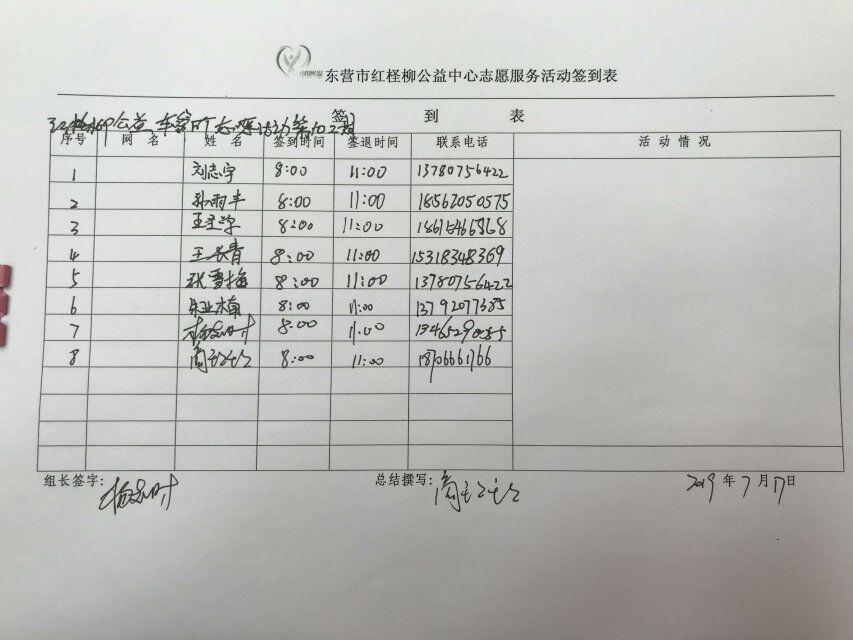 东营市红柽柳公益中心志愿服务活动签到表
签 到 表
序号 网 名 姓 名 签到时间 签退时间 联系电话 活 动 情 况
1 刘志宇 8:00 11:00 13780756422
2 孙雨丰 8:00 11:00 18562050575
3 8:00 11:00
4 王长青 8:00 11:00 15318348369
5 张雪梅 8:00 11:00 13780756422
6 朱业楠 8:00 11:00 13792077385
7 8:00 11:00
8 8:00 11:00 18706661766
组长签字: 总结撰写: 2019 年 7 月 17 日